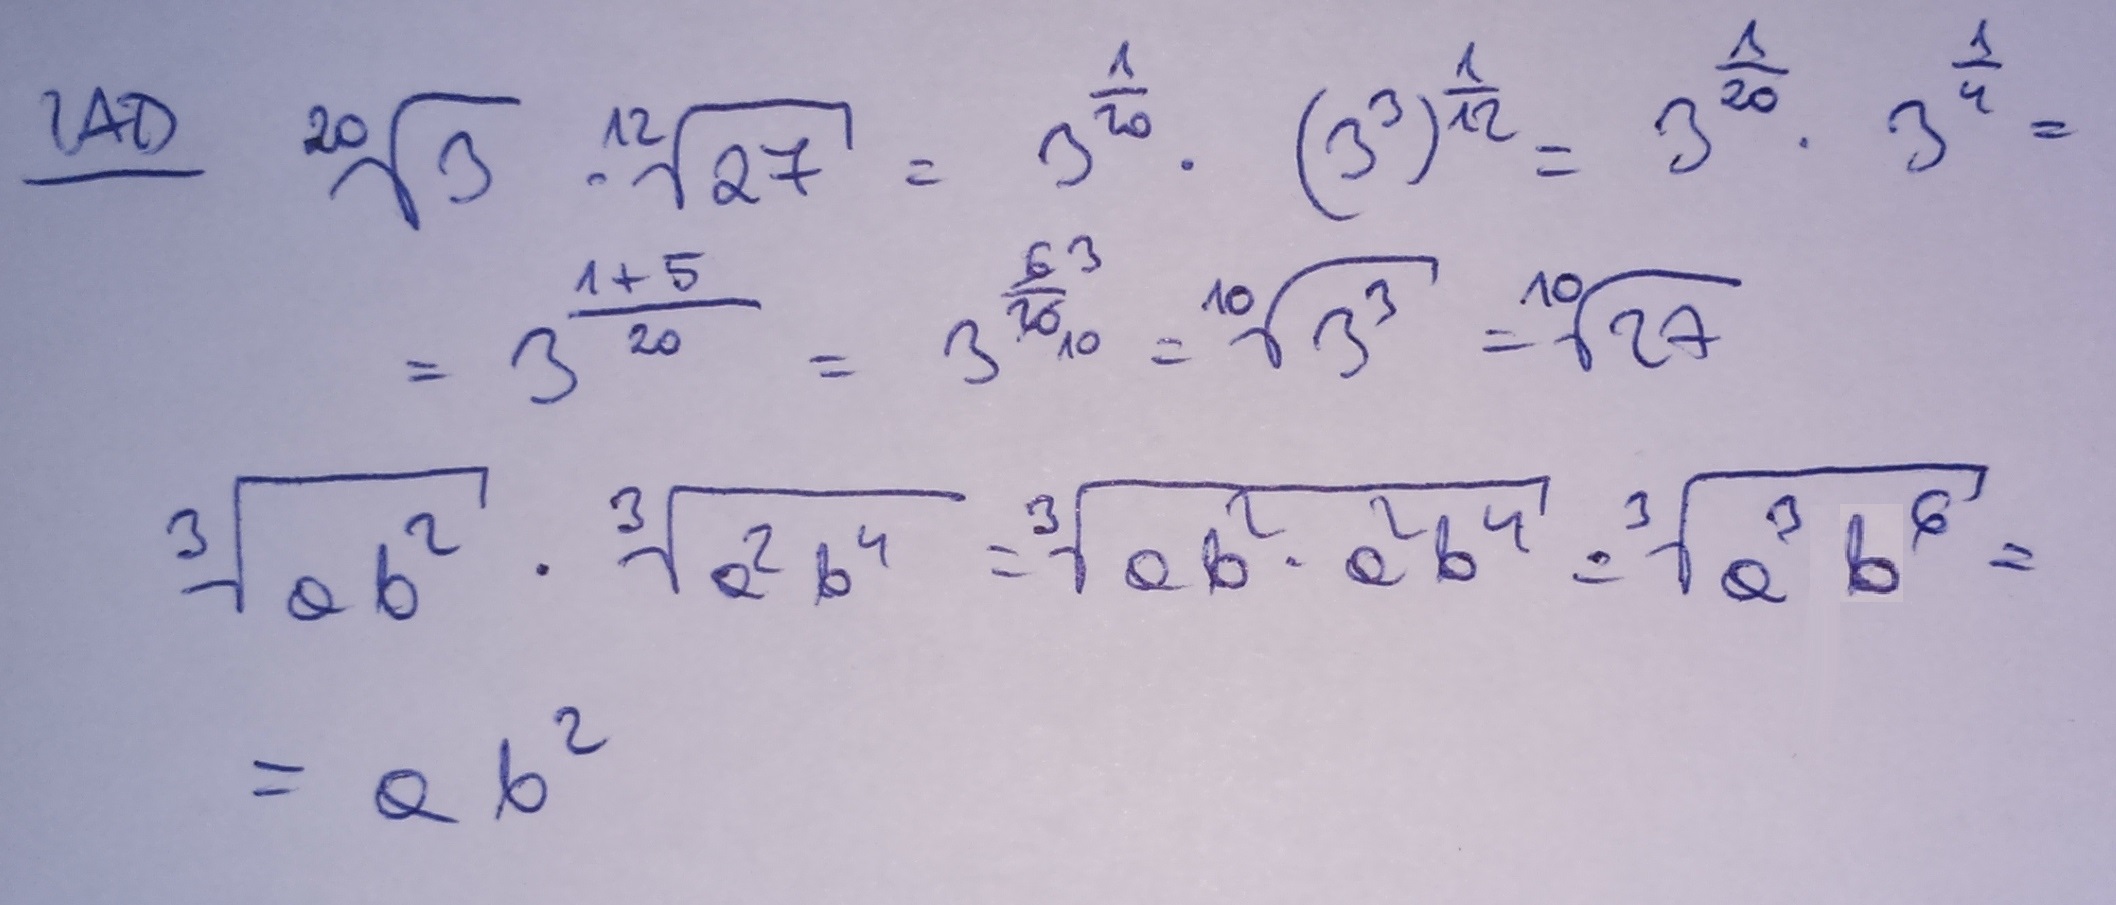 ZAD \sqrt[20]{3} \cdot \sqrt[12]{27} = 3^{\frac{1}{20}} \cdot (3^3)^{\frac{1}{12}} = 3^{\frac{1}{20}} \cdot 3^{\frac{1}{4}} =
= 3^{\frac{1+5}{20}} = 3^{\frac{6}{20} \frac{3}{10}} = \sqrt[10]{3^3} = \sqrt[10]{27}
\sqrt[3]{ab^2} \cdot \sqrt[3]{a^2b^4} = \sqrt[3]{ab^2 \cdot a^2b^4} = \sqrt[3]{a^3b^6} =
= ab^2